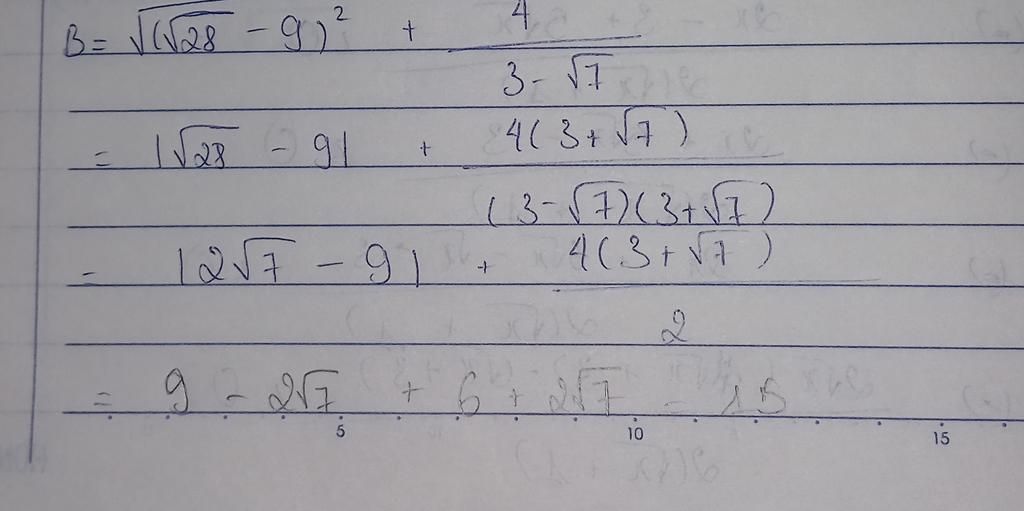 B = √(√28 - 9)² + 4/(3 - √7)
= |√28 - 9| + 4(3 + √7)/((3 - √7)(3 + √7))
= |2√7 - 9| + 4(3 + √7)/2
= 9 - 2√7 + 6 + 2√7 = 15
5 10 15